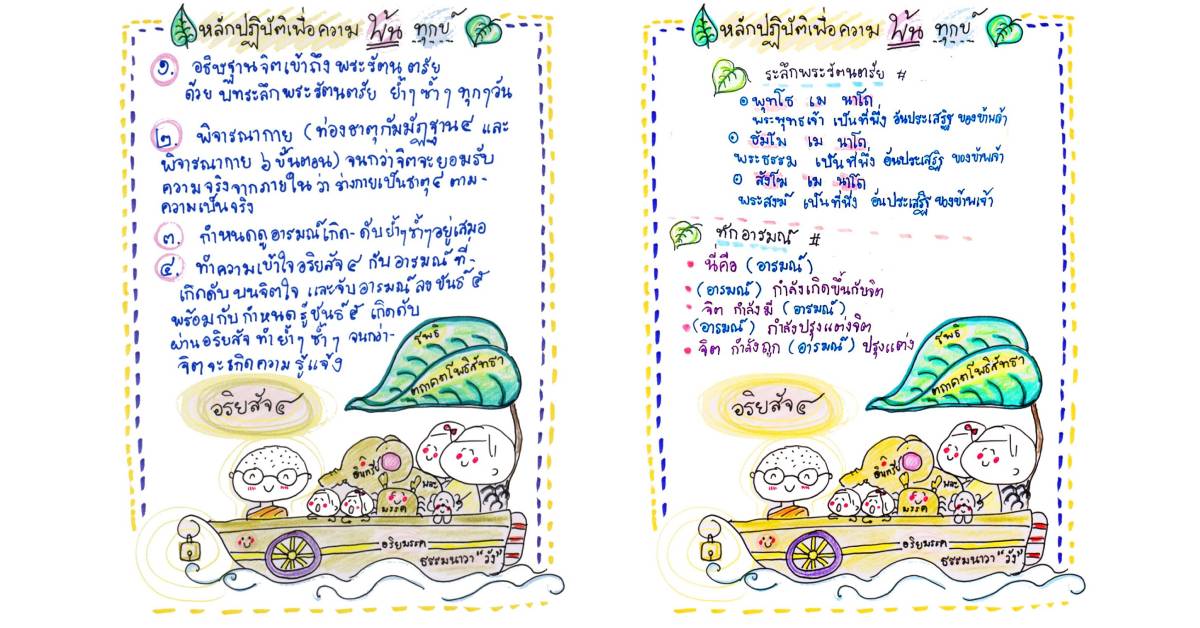 หลักปฏิบัติเพื่อความ พ้น ทุกข์
๑. อธิษฐานจิตเข้าถึง พระรัตนตรัย
ด้วย บทระลึกพระรัตนตรัย ย้ำๆ ซ้ำๆ ทุกๆวัน
๒. พิจารณากาย (ท่องธาตุกัมมัฏฐาน๔ และ
พิจารณากาย ๖ ขั้นตอน) จนกว่าจิตจะยอมรับ
ความจริงจากภายในว่า ร่างกายเป็นธาตุ๔ ตาม-
ความเป็นจริง
๓. กำหนดดูอารมณ์เกิด-ดับย้ำๆซ้ำๆอยู่เสมอ
๔. ทำความเข้าใจอริยสัจ๔ กับอารมณ์ที่-
เกิดดับบนจิตใจ และจับอารมณ์ลงขันธ์๕
พร้อมกับกำหนดรู้ขันธ์๕ เกิดดับ
ผ่านอริยสัจ ทำย้ำๆ ซ้ำๆ จนกว่า-
จิตจะเกิดความรู้แจ้ง
โพธิ
ตถาคตโพธิสัทธา
อริยสัจ๔
อินทรีย์
พละ
มรรค
อริยมรรค
ธรรมนาวา "วัง"
หลักปฏิบัติเพื่อความ พ้น ทุกข์
ระลึกพระรัตนตรัย #
พุทโธ เม นาโถ
พระพุทธเจ้า เป็นที่พึ่ง อันประเสริฐ ของข้าพเจ้า
ธัมโม เม นาโถ
พระธรรม เป็นที่พึ่ง อันประเสริฐ ของข้าพเจ้า
สังโฆ เม นาโถ
พระสงฆ์ เป็นที่พึ่ง อันประเสริฐ ของข้าพเจ้า
ทักอารมณ์ #
นี่คือ (อารมณ์)
(อารมณ์) กำลังเกิดขึ้นกับจิต
จิต กำลังมี (อารมณ์)
(อารมณ์) กำลังปรุงแต่งจิต
จิต กำลังถูก (อารมณ์) ปรุงแต่ง
โพธิ
ตถาคตโพธิสัทธา
อริยสัจ๔
อินทรีย์
พละ
มรรค
อริยมรรค
ธรรมนาวา "วัง"